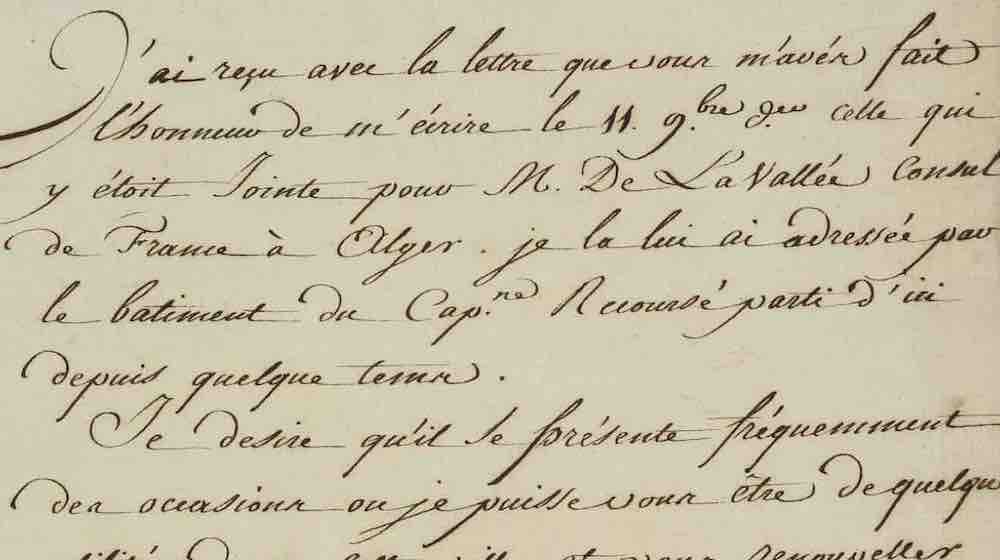 J'ai reçu avec la lettre que vous m'avés fait
l'honneur de m'écrire le 11. 9.bre d.er celle qui
y étoit Jointe pour M. De La Vallée Consul
de France à Alger. je la lui ai adressée par
le batiment du Cap.ne Recoursé parti d'ici
depuis quelque tems.
Je desire qu'il se présente fréquemment
des occasions ou je puisse vous être de quelqu